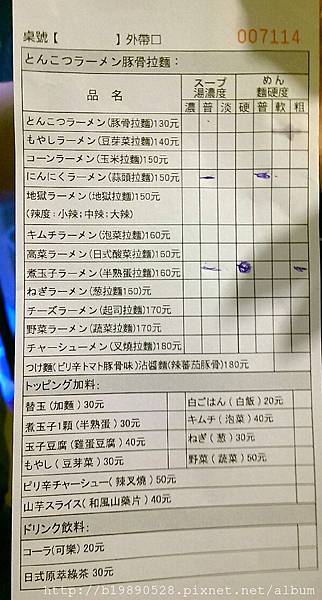 桌號【 】外帶口 007114
とんこつラーメン豚骨拉麵：
品 名 スープ 湯濃度 めん 麵硬度
濃 普 淡 硬 普 軟 粗
とんこつラーメン(豚骨拉麵)130元
もやしラーメン(豆芽菜拉麵)140元
コーンラーメン(玉米拉麵)150元
にんにくラーメン(蒜頭拉麵)150元
地獄ラーメン(地獄拉麵)150元
(辣度：小辣；中辣；大辣)
キムチラーメン(泡菜拉麵)160元
高菜ラーメン(日式酸菜拉麵)160元
煮玉子ラーメン(半熟蛋拉麵)160元
ねぎラーメン(葱拉麵)160元
チーズラーメン(起司拉麵)170元
野菜ラーメン(蔬菜拉麵)170元
チャーシューメン(叉燒拉麵)180元
つけ麵(ピリ辛トマト豚骨味)沾醬麵(辣蕃茄豚骨)180元
トッピング加料：
替玉(加麵) 30元 白ごはん(白飯) 20元
煮玉子1顆(半熟蛋) 30元 キムチ(泡菜) 40元
玉子豆腐(雞蛋豆腐) 40元 ねぎ(葱) 30元
もやし(豆芽菜) 30元 野菜(蔬菜) 50元
ピリ辛チャーシュー(辣叉燒) 50元
山芋スライス(和風山藥片) 40元
ドリンク飲料：
コーラ(可樂) 20元
日式原萃綠茶 30元
http://b19890528.pixnet.net/album